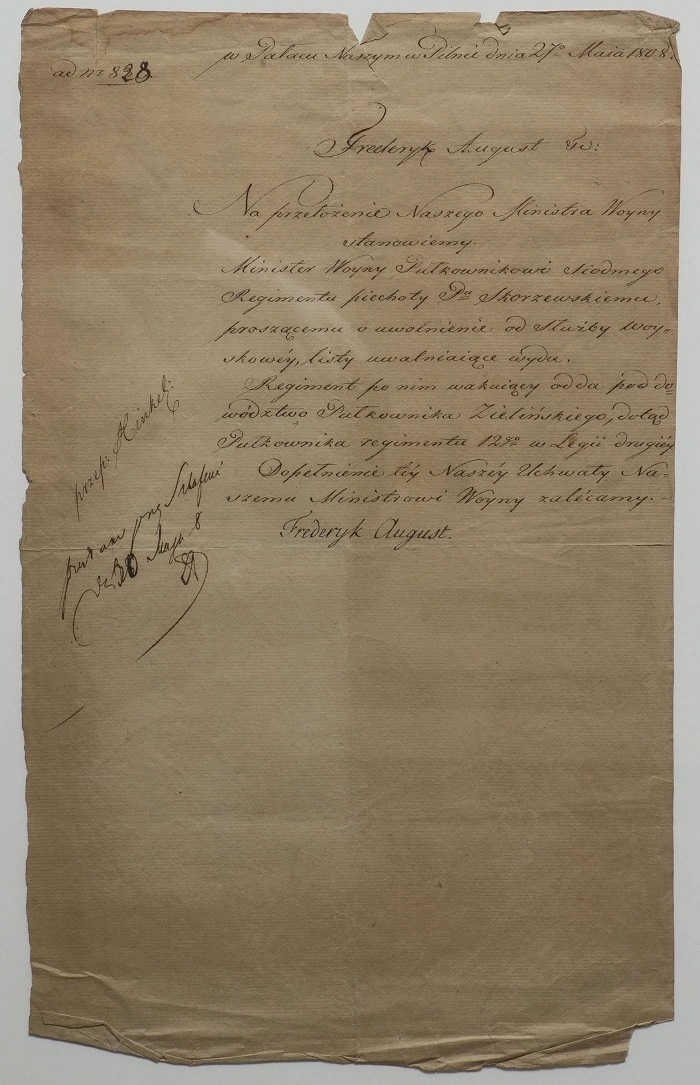 w Pałacu Naszym w Pilnic dnia 27º Maia 1808.
ad nr 828
Frederyk August &c:
Na przełożenie Naszego Ministra Woyny
stanowiemy.
Minister Woyny Pułkownikowi siodmego
Regimentu piechoty Pnu Skorzewskiemu,
proszącemu o uwolnienie od służby woy-
skowéy, listy uwalniaiące wyda.
Regiment po nim wakuiący odda pod do-
wództwo Pułkownika Zielińskiego, dotąd
Pułkownika regimentu 12go w Legii drugiéy
Dopełnienie téy Naszéy Uchwały Na-
szemu Ministrowi Woyny zalécamy.-
Frederyk August.
przep: Hinkel:
8